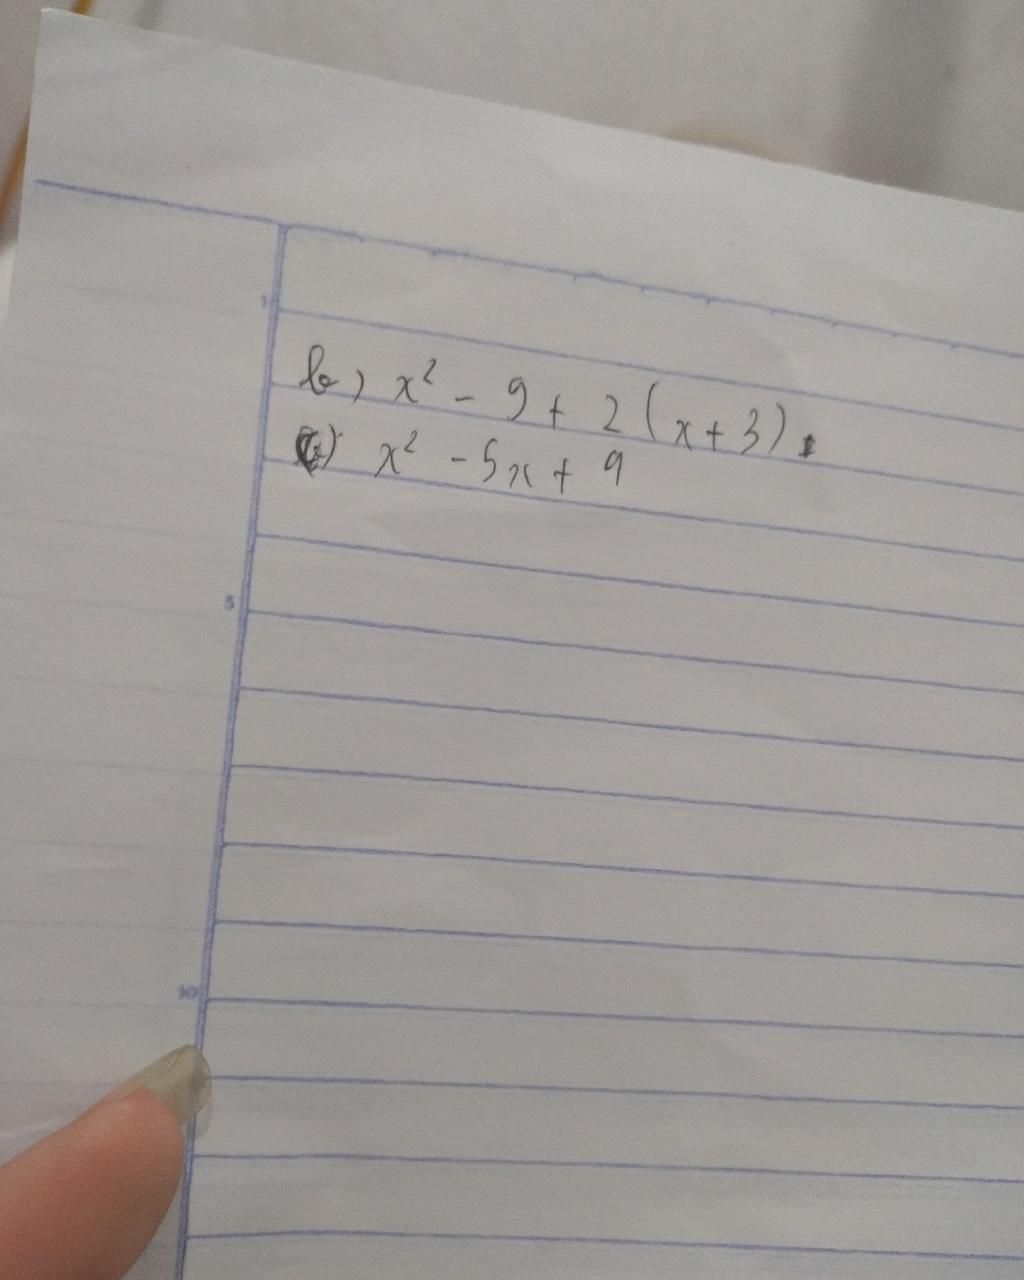 1
b) x² - 9 + 2(x+3).
c) x² - 5x + 9
5
10